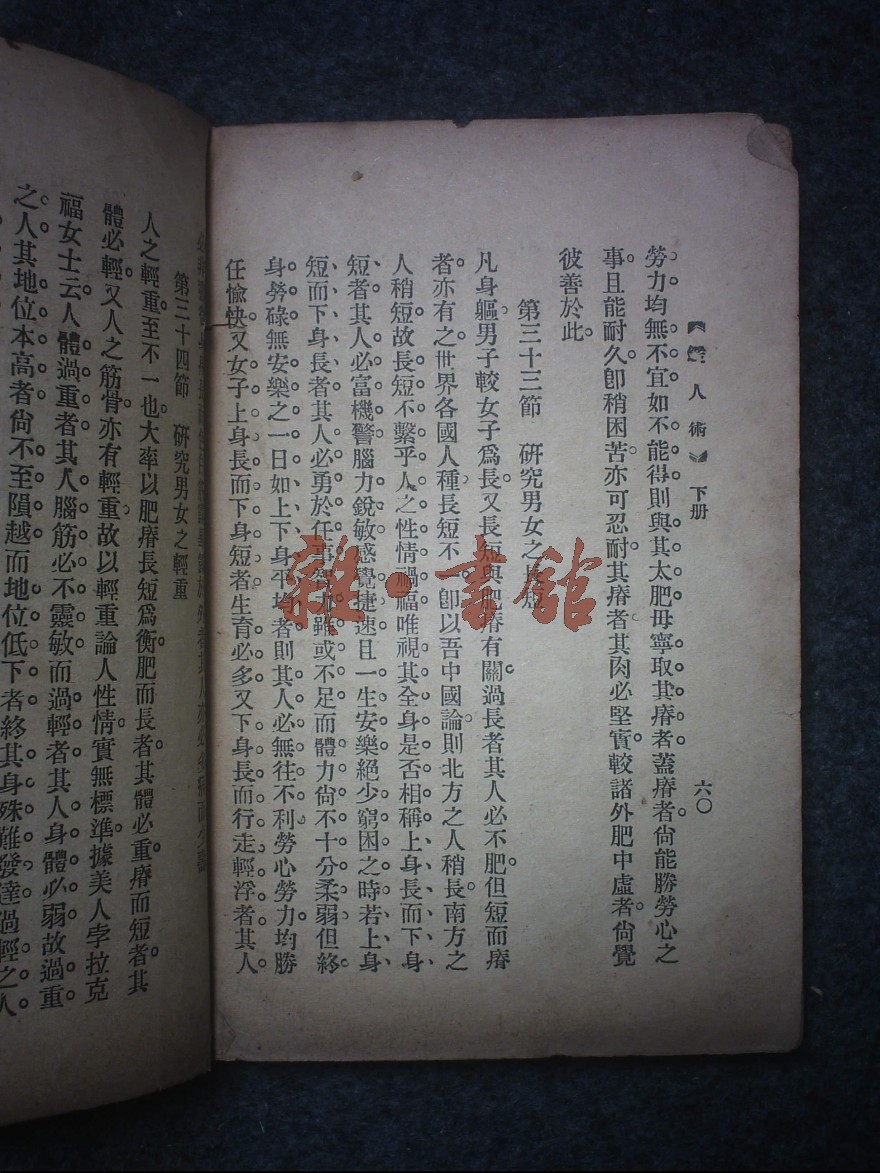 《鑒人術》 下册
六〇
勞力均無不宜如不能得則與其太肥毋寧取其瘠者蓋瘠者尙能勝勞心之
事且能耐久卽稍困苦亦可忍耐其瘠者其肉必堅實較諸外肥中虛者尙覺
彼善於此
第三十三節 硏究男女之長短
凡身軀男子較女子爲長又長短與肥瘠有關過長者其人必不肥但短而瘠
者亦有之世界各國人種長短不一卽以吾中國論則北方之人稍長南方之
人稍短故長短不繫乎人之性情禍福唯視其全身是否相稱上身長而下身
短者其人必富機警腦力銳敏感覺捷速且一生安樂絕少窮困之時若上身
短而下身長者其人必勇於任事智力雖或不足而體力尙不十分柔弱但終
身勞碌無安樂之一日如上下身平均者則其人必無往不利勞心勞力均勝
任愉快又女子上身長而下身短者生育必多又下身長而行走輕浮者其人
第三十四節 硏究男女之輕重
人之輕重至不一也大率以肥瘠長短爲衡肥而長者其體必重瘠而短者其
體必輕又人之筋骨亦有輕重故以輕重論人性情實無標準據美人孛拉克
福女士云人體過重者其人腦筋必不靈敏而過輕者其人身體必弱故過重
之人其地位本高者尙不至隕越而地位低下者終其身殊難發達過輕之人
雜·書館